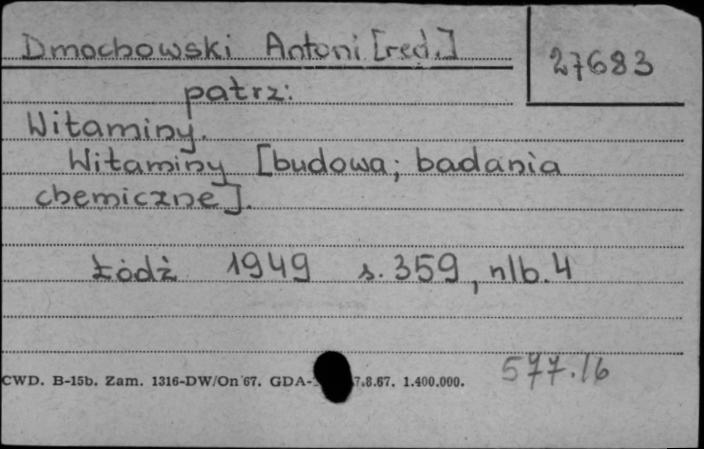 Dmochowski Antoni [red.]
27683
patrz:
Witaminy.
Witaminy [budowa; badania
chemiczne].
Łódź 1949 s. 359, nlb. 4
577.16
CWD. B-15b. Zam. 1316-DW/On 67. GDA- 7.8.67. 1.400.000.